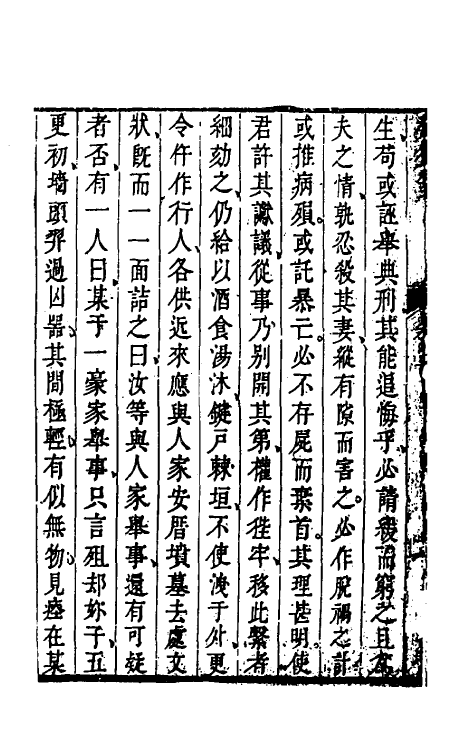 生苟或誣舉典刑其能追悔乎必請緩而窮之且為
夫之情孰忍殺其妻縱有隙而害之必作脫禍之計
或推病殞或託暴亡必不存屍而棄首其理甚明使
君許其讞議從事乃別開其第權作狴牢移此繫者
細劾之仍給以酒食湯沐鍵戶棘垣不使洩于外更
令仵作行人各供近來應與人家安厝墳墓去處文
狀既而一一面詰之曰汝等與人家舉事還有可疑
者否有一人曰某于一豪家舉事只言殂却妳子五
更初墻頭舁過凶器其間極輕有似無物見瘞在某